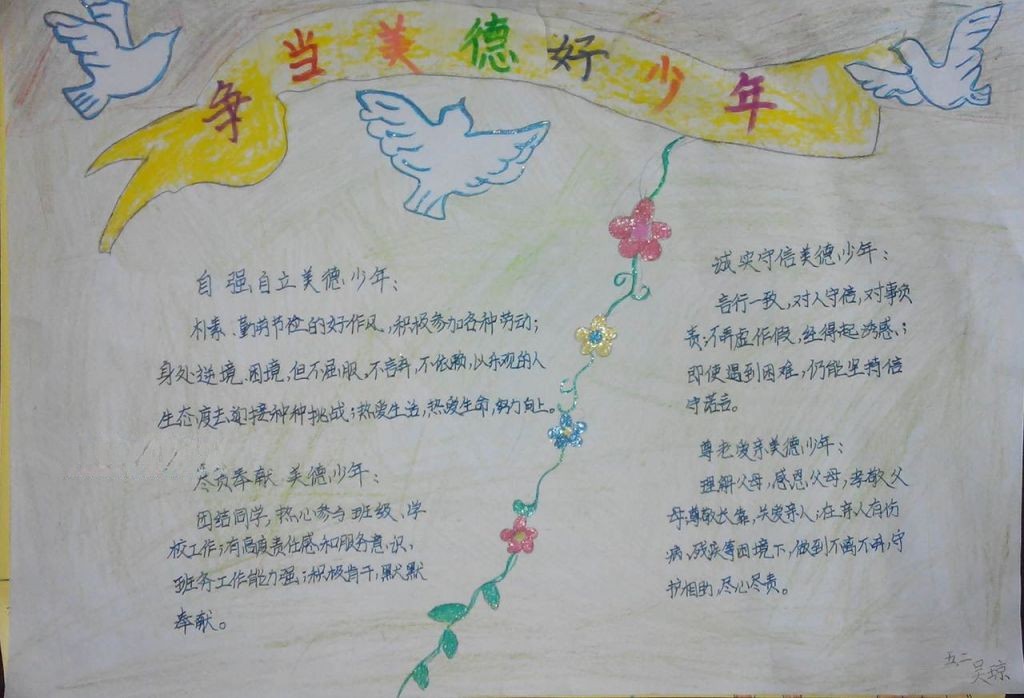 争当美德好少年
自强自立美德少年：
朴素、勤劳节俭的好作风，积极参加各种劳动；
身处逆境、困境，但不屈服，不言弃，不依赖，以乐观的人
生态度去迎接种种挑战；热爱生活，热爱生命，努力向上。
尽责奉献 美德少年：
团结同学，热心参与班级、学
校工作；有高度责任感和服务意识，
班务工作能力强；积极肯干，默默
奉献。
诚实守信美德少年：
言行一致，对人守信，对事负
责；不弄虚作假，经得起诱惑；
即使遇到困难，仍能坚持信
守诺言。
尊老爱亲美德少年：
理解父母，感恩父母，孝敬父
母，尊敬长辈，关爱亲人；在亲人有伤
病、残疾等困境下，做到不离不弃，守
护相助，尽心尽责。
五二
吴琼